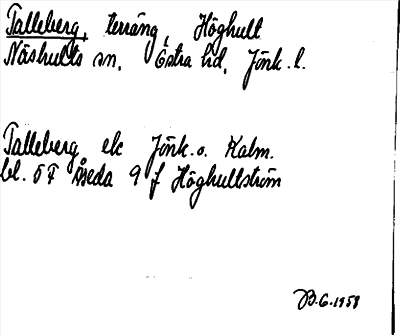 Talleberg, terräng, Höghult
Näshults sn. Östra hd. Jönk. l.
Talleberg ek Jönk. o. Kalm.
bl. 5F Åseda 9 f Höghultström
B.G. 1958